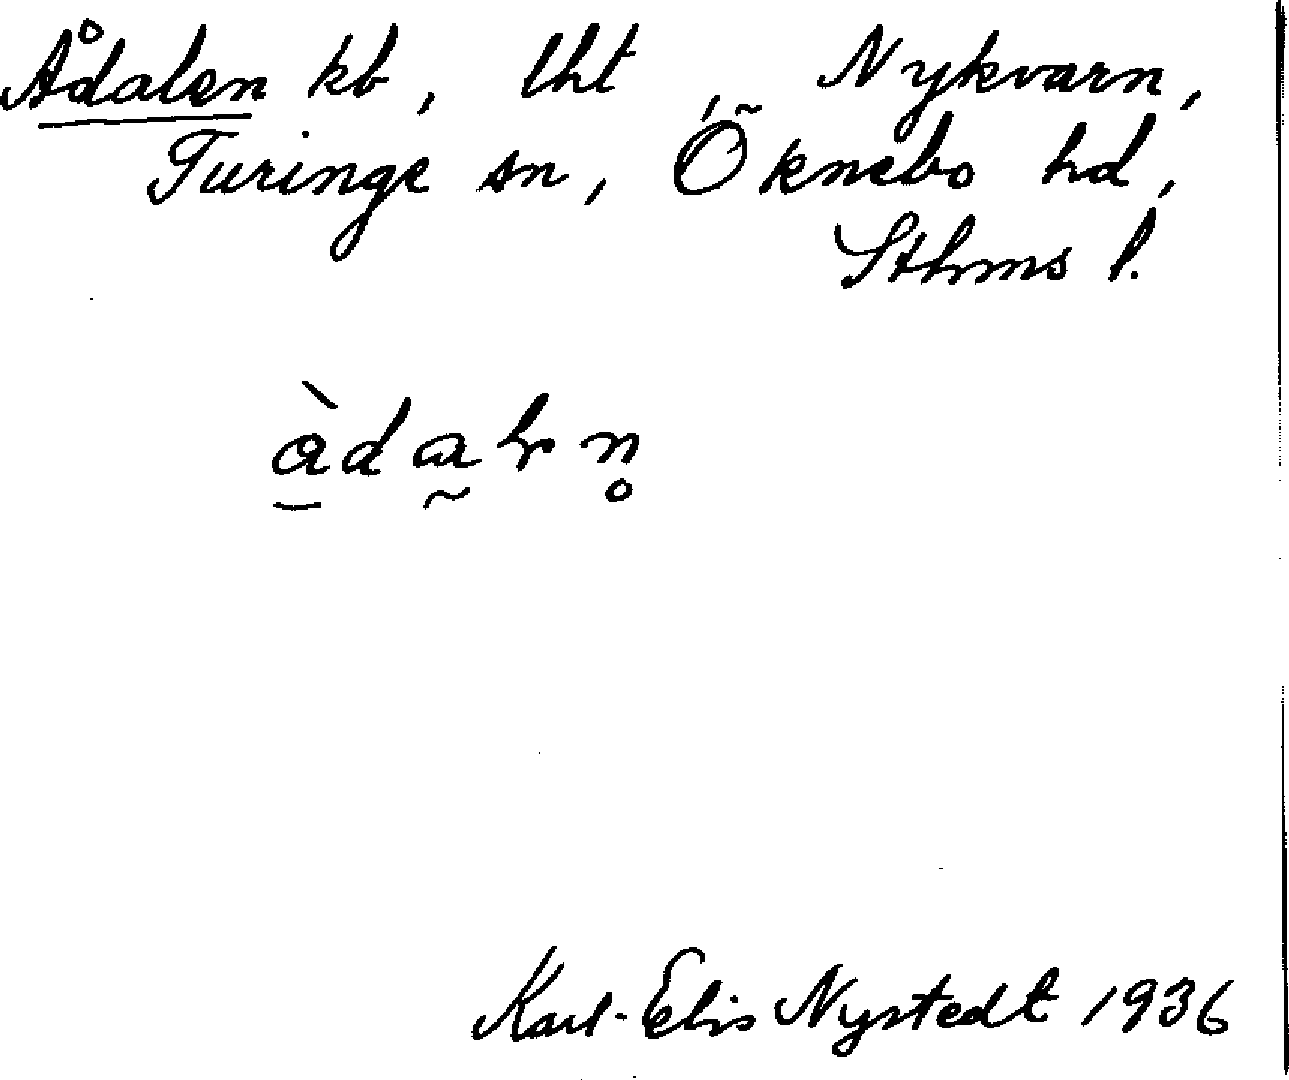 Ådalen kb, lht, Nykvarn,
Turinge sn, Öknebo hd,
Sthms l.
Karl-Elis Nystedt 1936